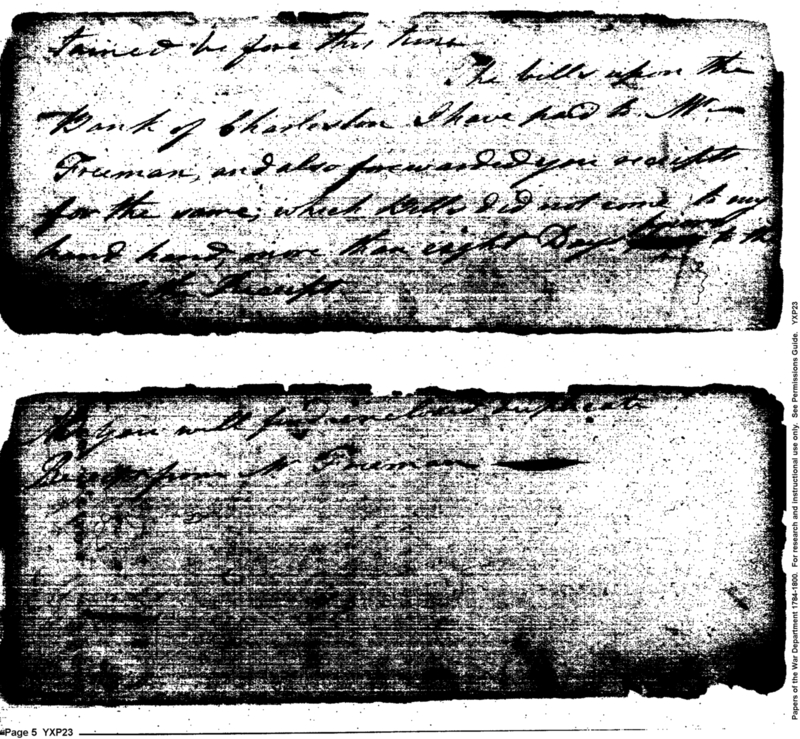 tained before this time
The bills upon the
Bank of Charleston I have paid to Mr.
Freeman, and also forwarded you receipts
for the same, which Bills did not come to my
hand hand, more than eight Days to the
the Receipt
you will find enclosed duplicate
Receipt from Mr Freeman
Page 5 YXP23
Papers of the War Department 1784-1800. For research and instructional use only. See Permissions Guide. YXP23